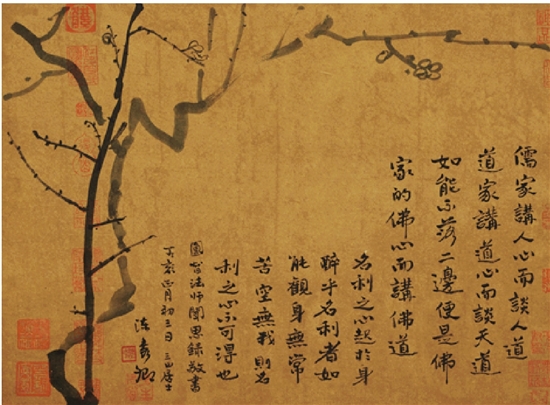 儒家講人心而談人道
道家講道心而談天道
如能不落二邊便是佛
家的佛心而講佛道
名利之心起於身
醉乎名利者如
能觀身無常
苦空無我則名
利之心不可得也
法師聞思錄敬書
丁亥正月初三日 三田居士